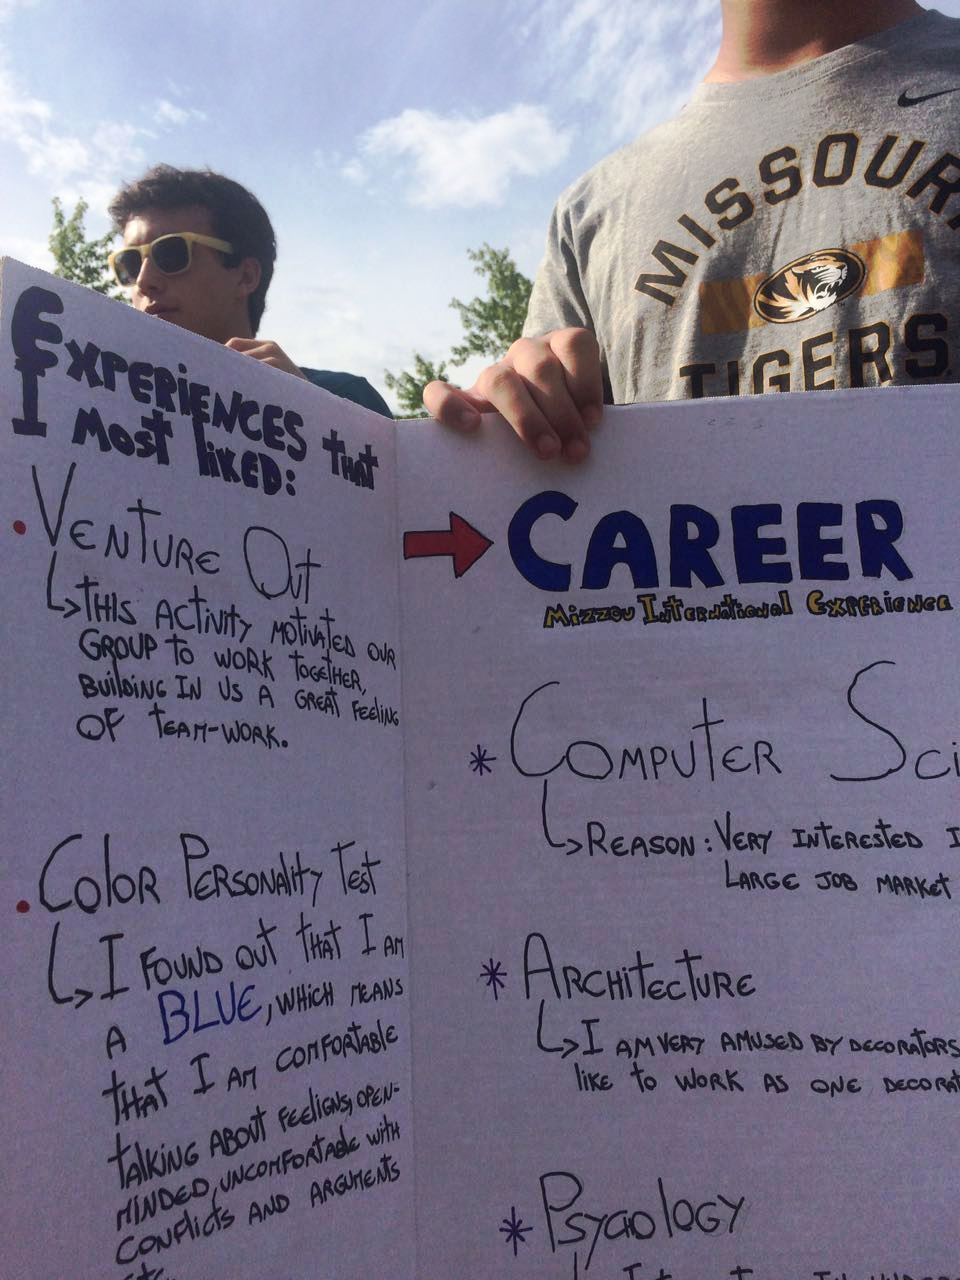 MISSOUR
TIGERS
EXPERIENCES THAT
I MOST LIKED:
VENTURE OUT
THIS ACTIVITY MOTIVATED OUR
GROUP TO WORK TOGETHER,
BUILDING IN US A GREAT FEELING
OF TEAM-WORK.
COLOR PERSONALITY TEST
I FOUND OUT THAT I AM
A BLUE, WHICH MEANS
THAT I AM COMFORTABLE
TALKING ABOUT FEELIGNS, OPEN-
MINDED, UNCOMFORTABLE WITH
CONFLICTS AND ARGUMENTS
ETC.
CAREER
MIZZOU INTERNATIONAL EXPERIENCE
* COMPUTER SCI
REASON: VERY INTERESTED I
LARGE JOB MARKET
* ARCHITECTURE
I AM VERY AMUSED BY DECORATORS
LIKE TO WORK AS ONE DECORAT
* PSYCOLOGY